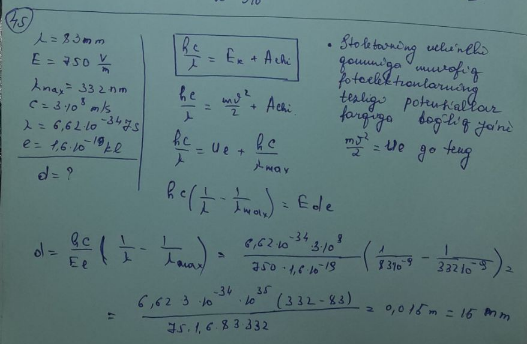 45
λ = 83 mm
E = 750 V/m
λmax = 332 nm
c = 3·10⁸ m/s
λ = 6,62·10⁻³⁴ Js
e = 1,6·10⁻¹⁹ kl
d = ?
hc/λ = Ek + Achi
hc/λ = mϑ²/2 + Achi
hc/λ = Ue + hc/λmax
hc(1/λ - 1/λmax) = Ede
• Stoletovning
qonuniga muvofiq
fotoelektronlarning
tezligi potentsiallar
farqiga bog'liq ya'ni
mϑ²/2 = Ue ga teng
d = hc/Ee (1/λ - 1/λmax) = 6,62·10⁻³⁴·3·10⁸/750·1,6·10⁻¹⁹ (1/83·10⁻⁹ - 1/332·10⁻⁹) =
= 6,62·3·10⁻³⁴·10³⁵ (332-83)/75·1,6·83·332 = 0,015 m = 15 mm